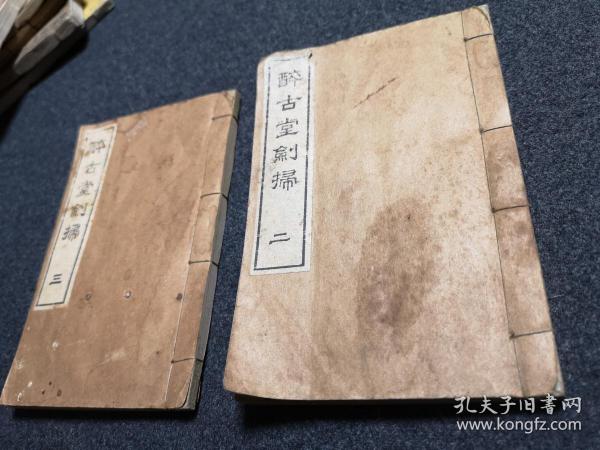 醉古堂劍掃 二
醉古堂劍掃 三
孔夫子旧书网
www.kongfz.com